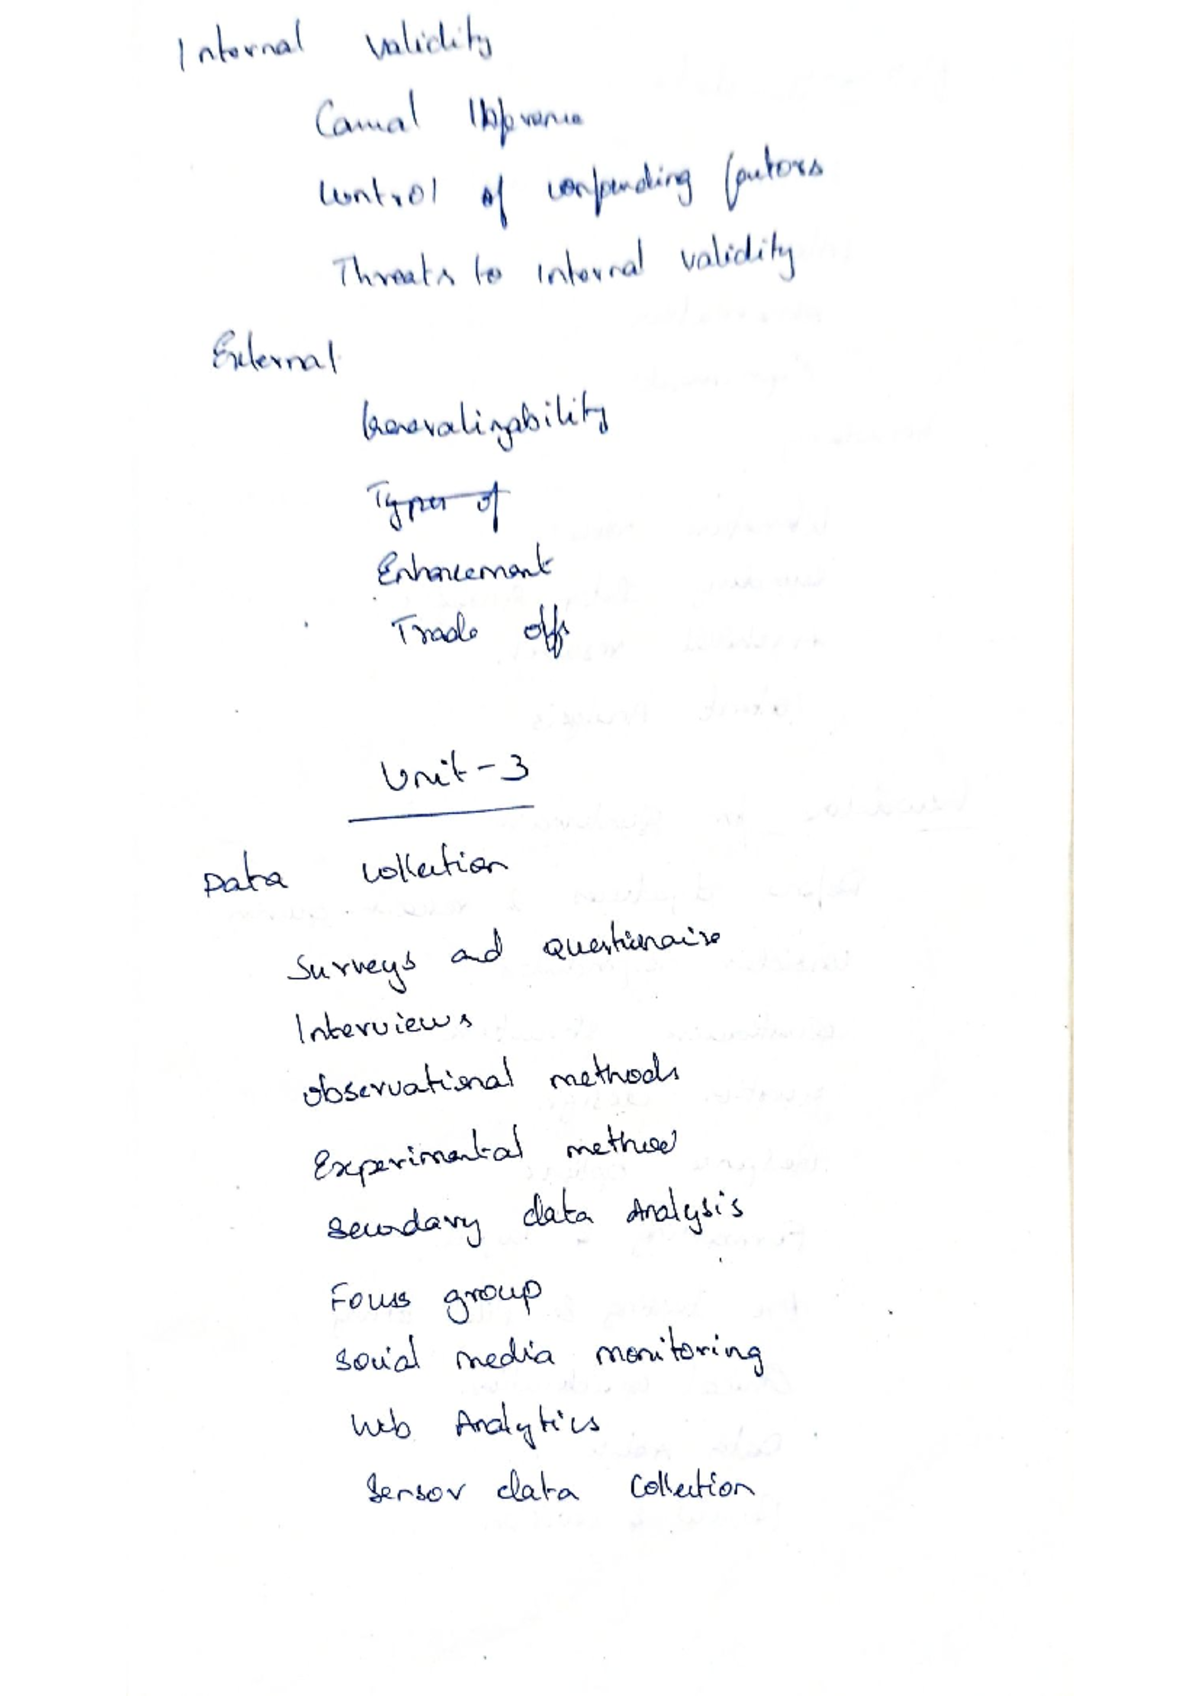 Internal validity
Causal
Control of confounding factors
Threats to internal validity
External
Generalizability
Types of
Enhancement
Trade offs
Unit-3
Data collection
Surveys and questionaire
Interviews
observational methods
Experimental method
secondary data Analysis
Focus group
social media monitoring
Web Analytics
Sensor data Collection